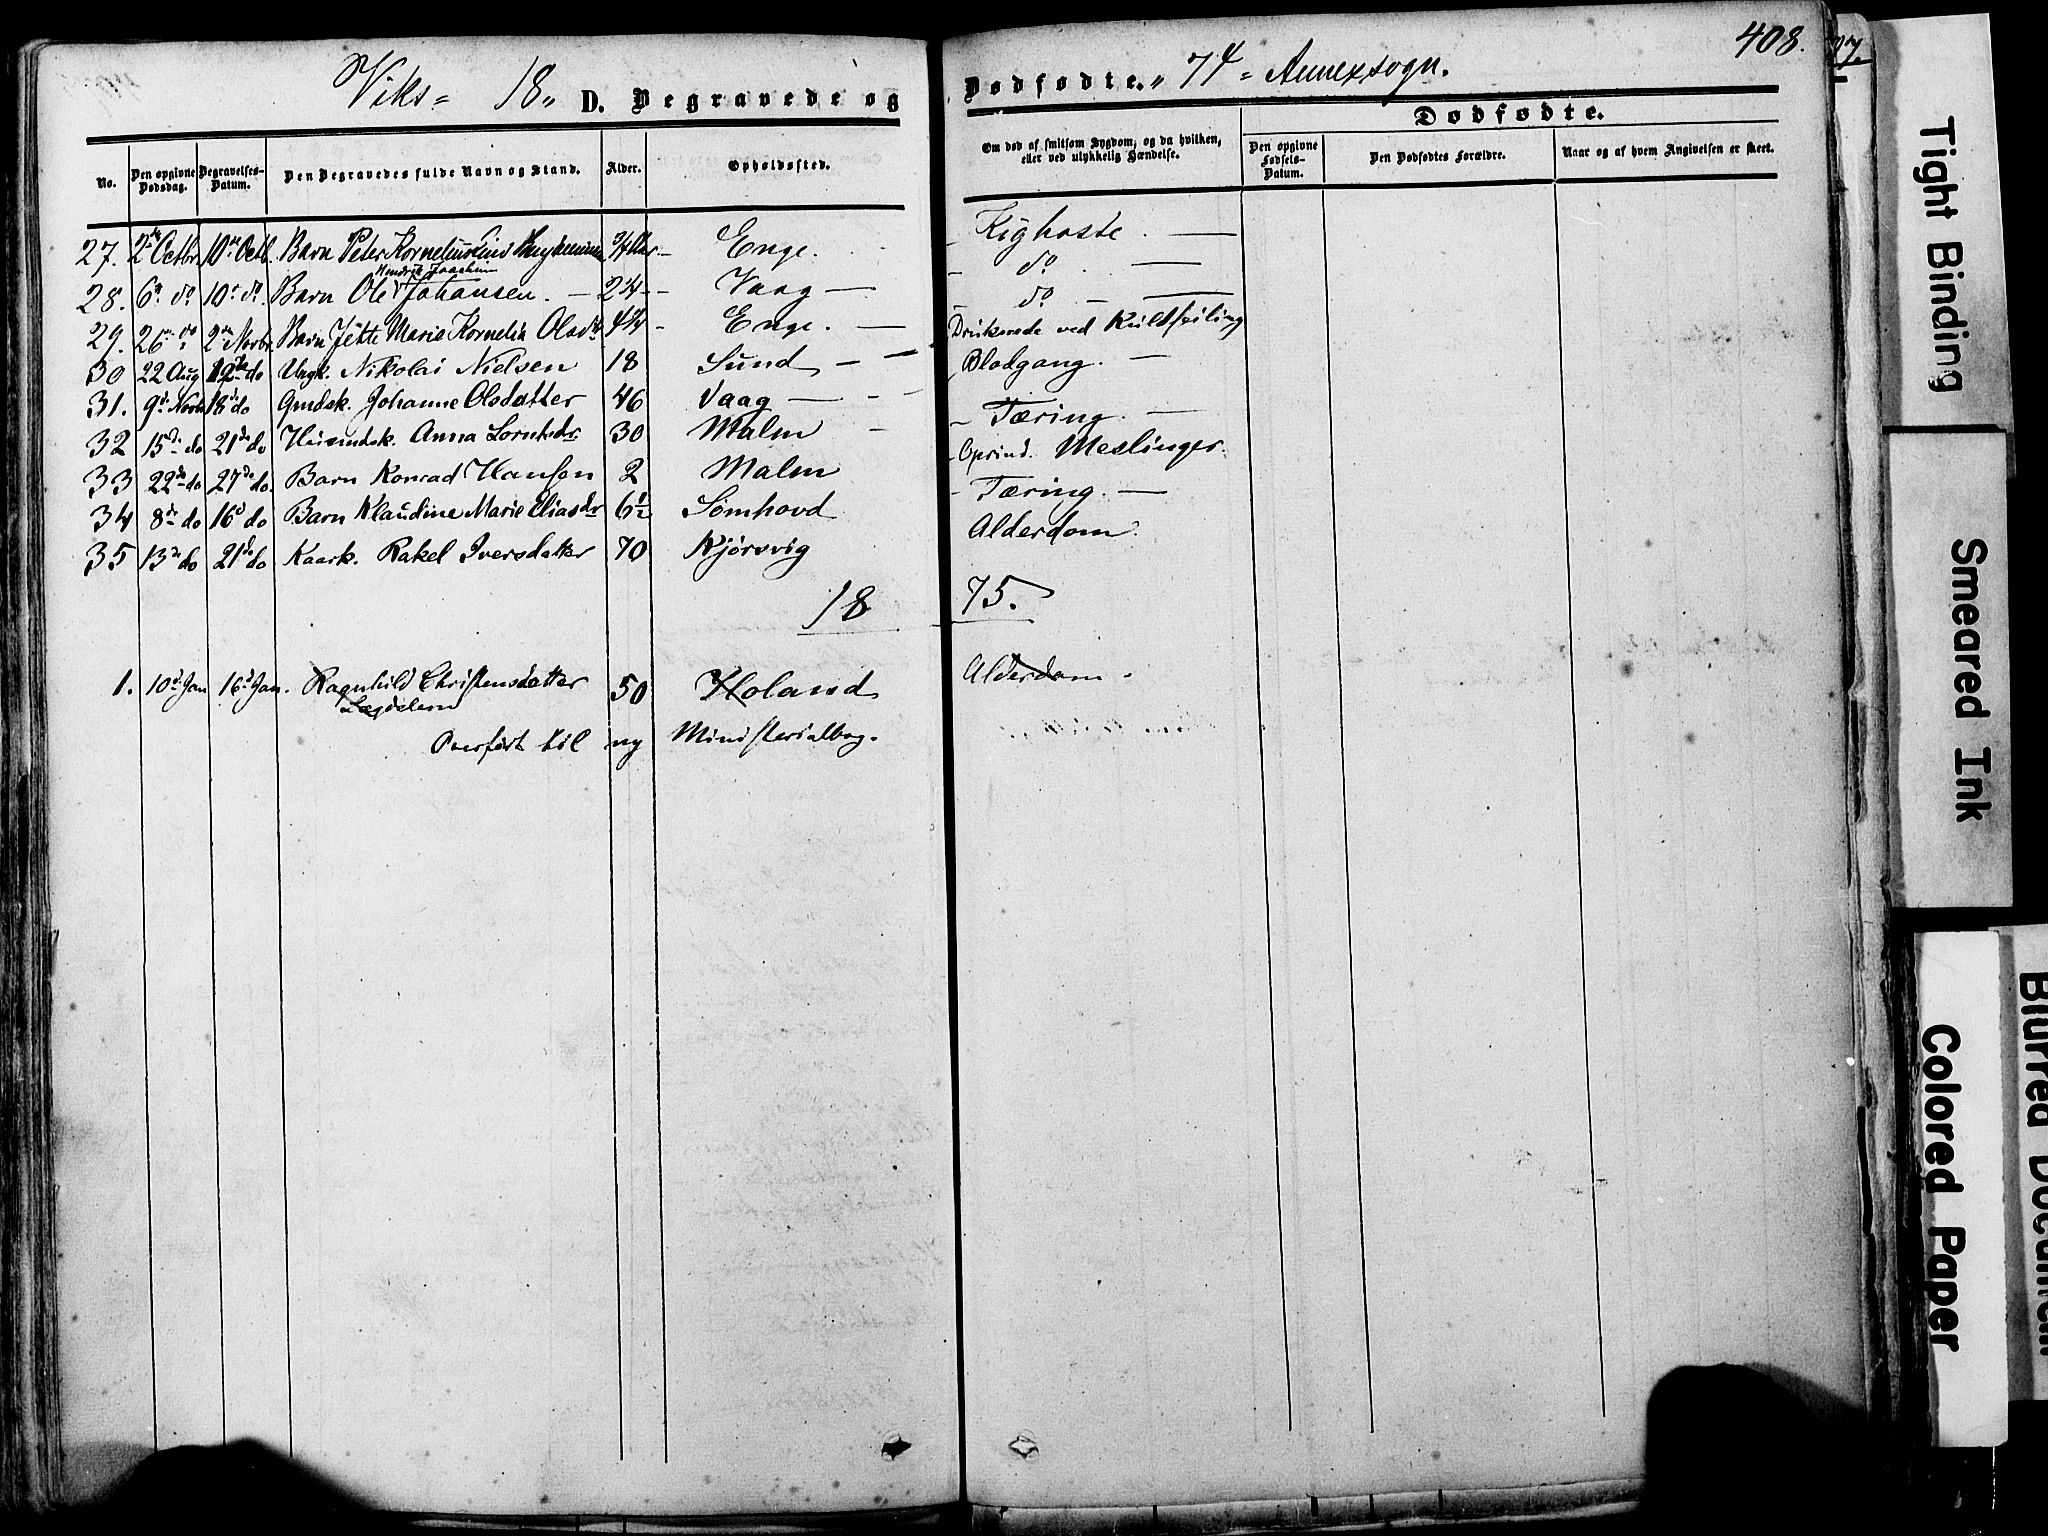 408.
Viks= 18" D. Begravede og Dødfødte. " 74 = Annexsogn.
Dødfødte.
No. Den opgivne Dødsdag. Begravelses-Datum. Den Begravedes fulde Navn og Stand. Alder. Opholdssted. Om død af smitsom Sygdom, og da hvilken, eller ved ulykkelig Hændelse. Den opgivne Fødsels-Datum. Den Dødfødtes Forældre. Naar og af hvem Angivelsen er skeet.
27. 2den Octbr. 10de Octb. Barn Peter Kornelius 3/4 Aar – Enge. – Kighoste. —
Hendrik Joachim
28. 6te do. 10de do. Barn Ole Johansen. – 2 1/4 – Vaag — – do —
29. 26de do 2den Novbr. Barn Jette Marie Kornelia Olsdtr 4 3/4 – Enge. — – do – —
30 22 Aug 12te do Ungk. Nikolai Nielsen 18 Sund – — Druknede ved Kuldseiling
31. 9de Novb 18de do Gmdsk. Johanne Olsdatter 46 Vaag — - - Blodgang. —
32 15de do 21de do Husmdsk. Anna Lorntsdr 30 Malm – – Tæring. —
33 22de do 27de do. Barn Konrad Hansen 2 Malm – Oprind. Meslinger.
34 8de do 16d do Barn Klaudine Marie Eliasdr 6 1/2 Sømhovd – Tæring. —
35 13de do 21de do Kaark. Rakel Iversdatter 70 Njørsvig Alderdom.
18 75.
1. 10d Jan 16d Jan. Ragnhild Christensdatter 50 Holand Alderdom.
Lægdslem
Overført til ny Ministerialbog.
07.
Tight Binding
Smeared Ink
Colored Paper
Blurred Document